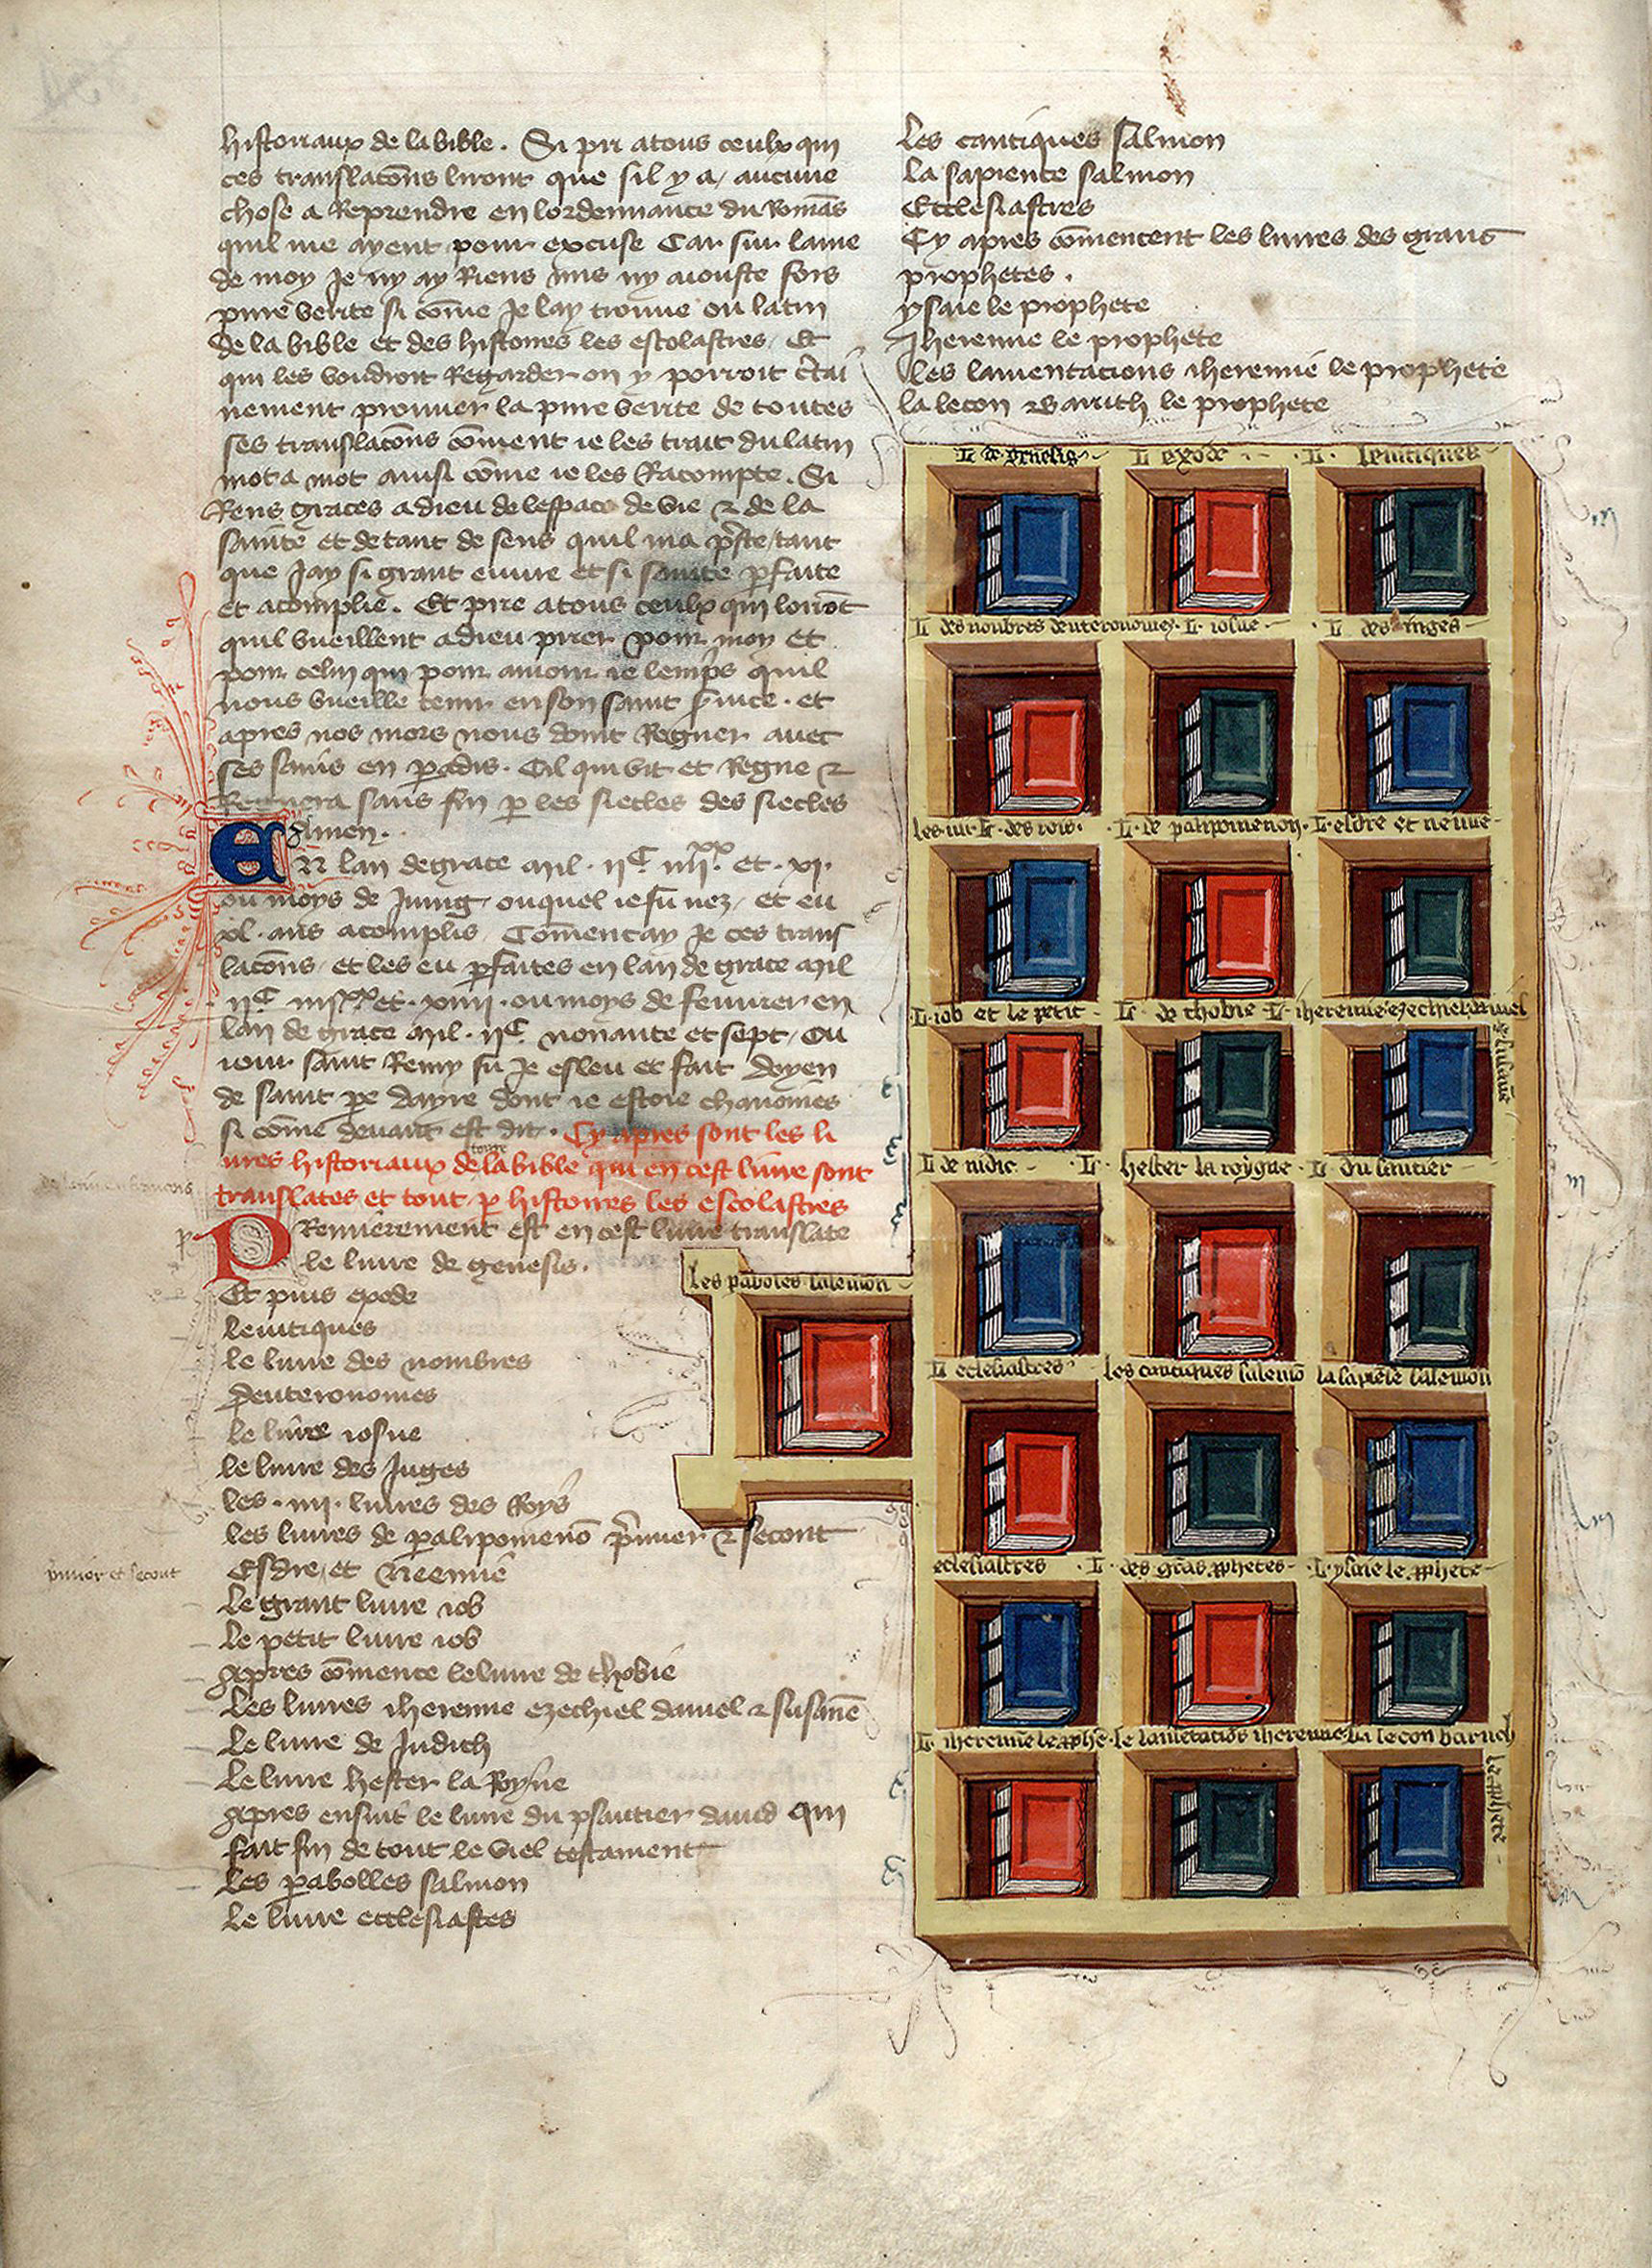 historiaux de la bible . Si pri a tous ceulx qui
ces translacōns liront que sil y a aucune
chose a Reprendre en lordennance du Romās
quil me ayent pour excuse Car sur lame
de moy Je ny ay Riens mis ny aiouste fors
pure verite si cōme Je lay trouue ou latin
de la bible et des histoires les escolastres Et
qui les voudroit Regarder on y porroit c̄tai
nement prouuer la pure verite de toutes
ses translacōns cōment ie les trait du latin
mot a mot ainsi cōme ie les Racompte . Si
Rens graces a dieu de lespace de vie & de la
sainte et de tant de sens quil ma p̄ste tant
que Jay si grant euure et si sainte p̄faite
et acomplie . Et prie a tous ceulx qui lorrōt
quil vueillent a dieu prier pour moy et
pour celui qui pour amour ie lemp̄s quil
nous vueille tenir en son saint s̄uice . et
apres nos mors nous doint Regner auec
ses sains en p̄adis . Cil qui vit et Regne &
Regnera sans fin p̄ les siecles des siecles
Amen .
EN lan de grace mil . ijC iiijxx et . xi .
ou moys de Juing ouquel ie fu nez et eu
xl . ans acomplis Cōmencay Je ces trans
lacōns et les eu p̄faites en lan de grace mil
ijC iiijxx et . xiiij . ou moys de feurier en
lan de grace mil . ijC nonante et sept Ou
iour saint Remy fu Je esleu et fait Doyen
de saint pe dayre dont ie estoie chanoines
si cōme deuant est dit . Cy apres sont les li
ures historiaux de la bible qui en cest liure sont
translates et tout p̄ histoires les escolastres
PRemierement est en cest liure translate
le liure de genesis .
Et puis exode
leuitiques
le liure des nombres
deuteronomes
le liure iosue
le liure des Juges
les . iiij . liures des Roys
les liures de palipomenō p̄mier & secont
Esdre et Neemie
p̄mier et secont
Le grant liure iob
Le petit liure iob
Apres cōmence le liure de thobie
Les liures iheremie ezechiel daniel & susanē
Le liure de Judich
Le liure hester la Royne
Apres ensiut le liure du psautier dauid qui
fait fin de tout le viel testament
Les p̄abolles salmon
Le liure ecclesiastes
Les cantiques salmon
La sapience salmon
Ecclesiastres
Cy apres cōmencent les liures des grans
prophetes .
ysaie le prophete
Jheremie le prophete
Les lamentacions iheremie le prophete
La lecon Baruth le prophete
L de genesis
L exode
L . leuitiques
L des nonbres deuteronomez . L iosue
L des iuges
les iiii L des rois .
L . de palipomenon .
L . esdre et neemie
L . iob et le petit
L de thobie
L iheremie ezechiel daniel
et susane
L de iudic
L . hester la roygne
L du sautier
Les paboles salemon
L eclesiastres
les cantiques salemō
la sapiēse salemon
eclesiastres
L . des grās pphetes
L . ysaie le pphete
L . iheremie le pphe
le lamētacios iheremie
la lecon baruch
le pphete